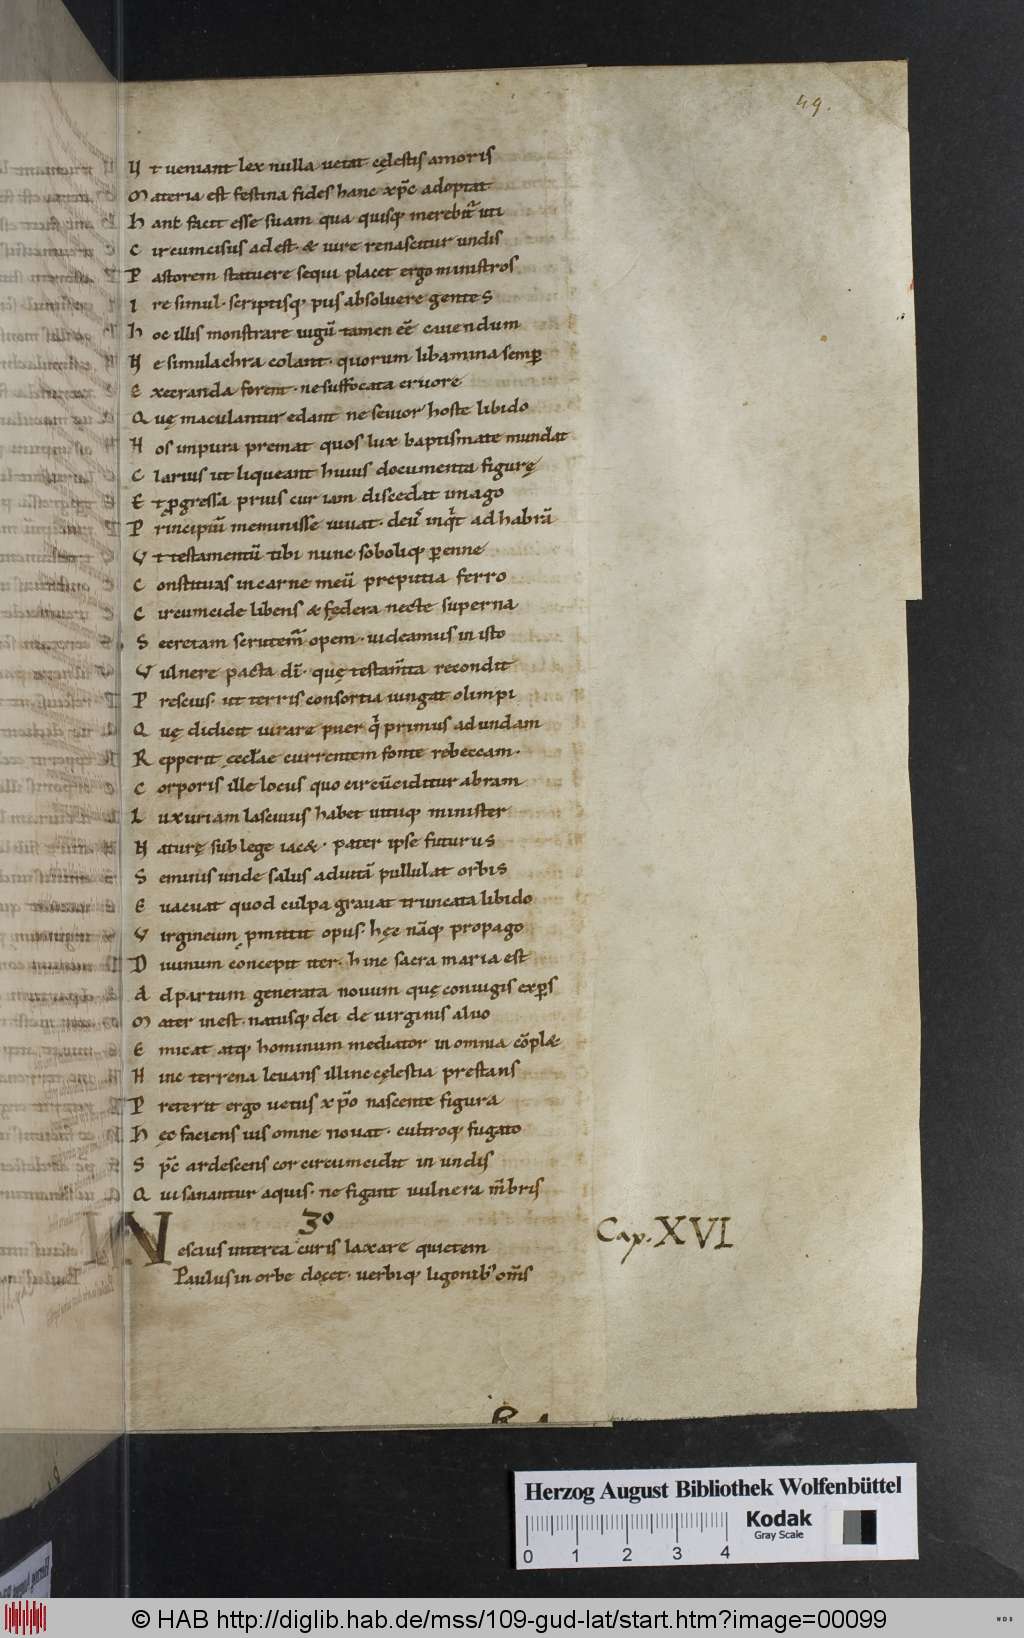 49.
N t ueniant lex nulla uetat cęlestis amoris
M ateria est festina fides hanc xp̄c adoptat
h anc facit esse suam qua quisq; merebit᷑ uti
C ircumcisus adest. & iure renascitur undis
P astorem statuere sequi placet ergo ministros
I re simul. scriptisq; piis absoluere gentes
h oc illis monstrare uigū tamen eē cauendum
N e simulachra colant. quorum libamina semꝑ
E xecranda forent. ne suffocata cruore
Q uę maculantur edant ne seuior hoste libido
H os inpura premat quos lux baptismate mundat
C larius ut liqueant huius documenta figurę
E t ꝓgressa prius cur iam discedat imago
P rincipiū meminisse iuuat. deus̄ inq̇t ad habrā
V t testamentū tibi nunc soboliq; ꝑenne
C onstituas in carne meū preputia ferro
C ircumcide libens & fędera necte superna
S ecretam scrutem᷑ opem. uideamus in isto
V ulnere pacta dī. quę testam̄ta recondit
P rescius. ut terris consortia iungat olimpi
Q uę didicit iurare puer q̇ primus ad undam
R epperit ęcclae currentem fonte rebeccam.
C orporis ille locus quo circūciditur abram
L uxuriam lasciuus habet uitiiq; minister
N aturę sub lege iac&. pater ipse futurus
S eminis unde salus aduitā pullulat orbis
E uacuat quod culpa grauat truncata libido
V irgineum p̄mittit opus. hęc nāq; propago
D iuinum concepit iter. hinc sacra maria est
A d partum generata nouum quę coniugis exꝑs
M ater inest. natusq; dei de uirginis aluo
E micat atq; hominum mediator in omnia cōpl&
H inc terrena leuans illinc cęlestia prestans
P reterit ergo uetus xp̄o nascente figura
H ęc faciens uis omne nouat. cultroq; fugato
S pc̄ ardescens cor circumcidit in undis
Q ui sanantur aquis. ne figant uulnera m̄bris
3º
N escius interea curis laxare quietem Cap. XVI
Paulus in orbe docet. uerbiq; ligonib; om̄s
Herzog August Bibliothek Wolfenbüttel
Kodak
Gray Scale
0 1 2 3 4
© HAB http://diglib.hab.de/mss/109-gud-lat/start.htm?image=00099